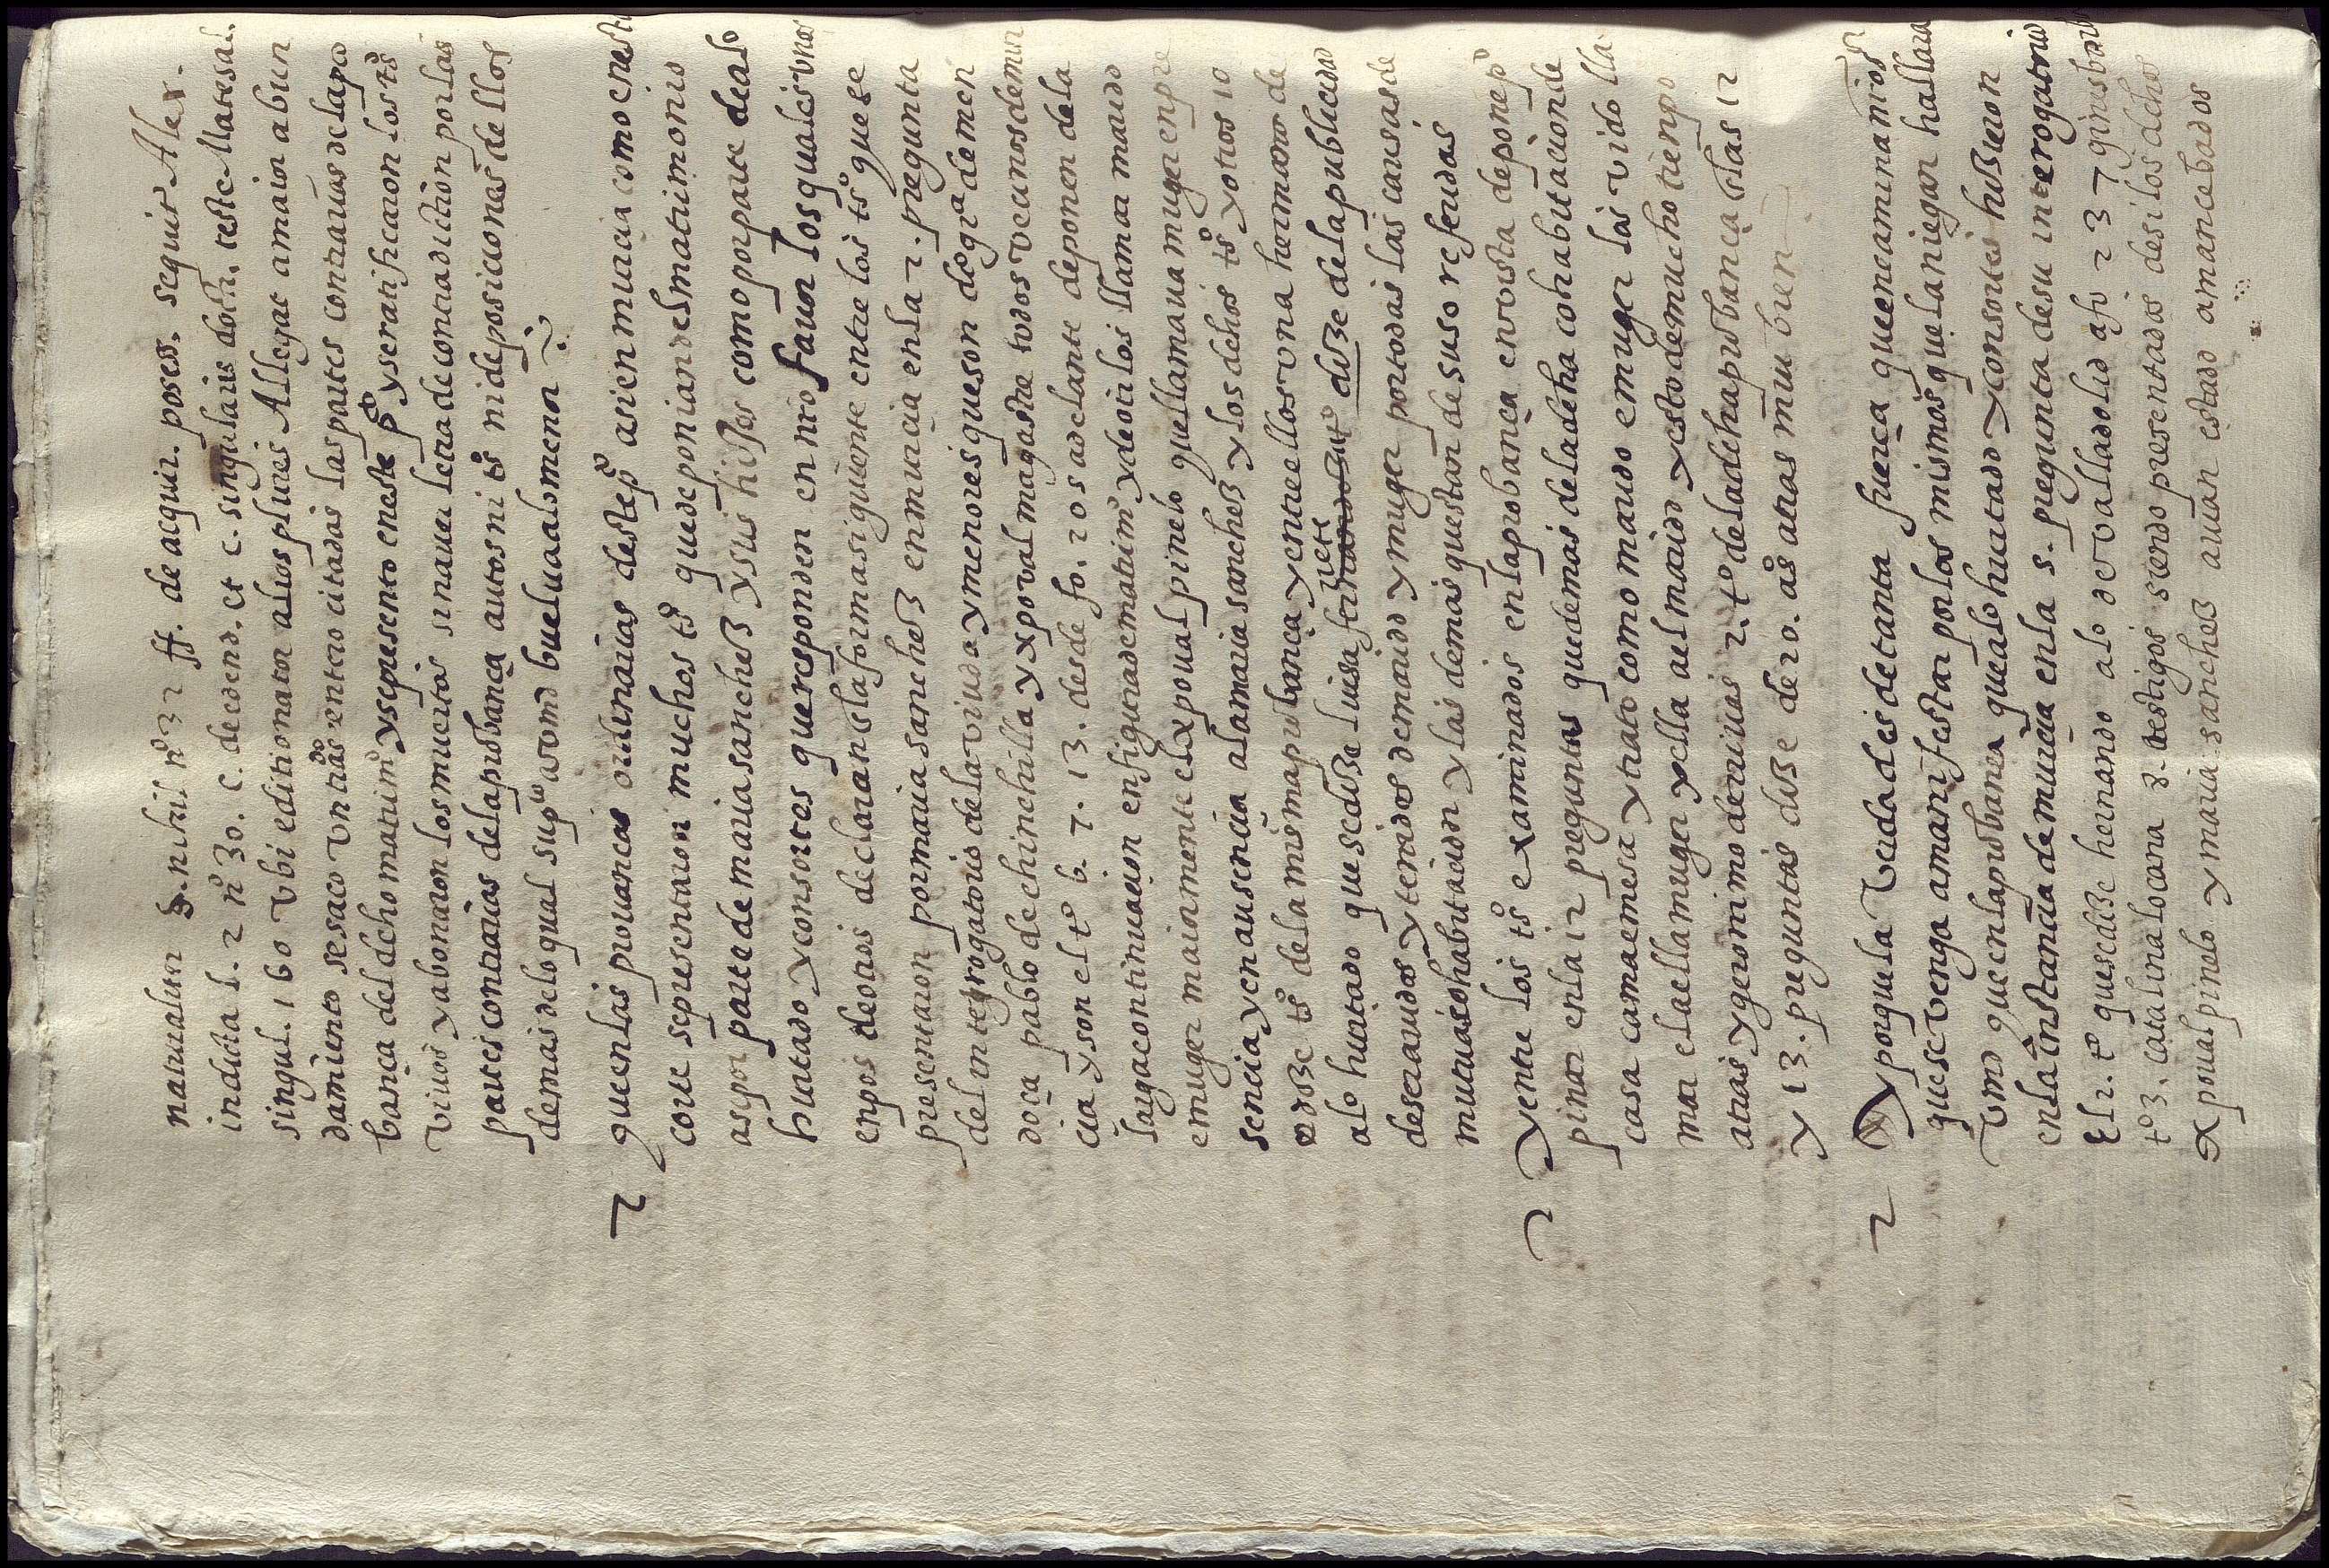 naturaliter §. nihil nº 32 ff. de acquir. poses. sequit Alex.
inducta l. 2 nº 30. c. de edend. et c. singularis doctr. teste Matesal.
singul. 160 Vbi editionator alios plures Allegat a maior abun
damiento se saco Vn trasdo entero citadas las partes contrarias de la pro
bança del dicho matrimº y se presento en este pto y se ratificaron los tsº
viuos y abonaron los muertos sin auer letra de contradicion por las
partes contrarias de la probança autos ni tsº ni deposiciones de llos
demas de lo qual supco a vmd buelua a lo menor
que en las prouanças ordinarias deste pº asi en murcia como en esta
corte se presentaron muchos tsº que deponian del matrimonio
asi por parte de maria sanchez y sus hijos como por parte de alº
hurtado y consortes que responden en nro fauor los quales vnos
en pos de otros declaran en la forma siguiente entre los tsº que se
presentaron por maria sanchez en murcia en la 2. pregunta
del interrogatorio de la viuda y menores que son dº gra de men
doça pablo de chinchilla y xpoval magastre todos vecinos de mur
cia y son el tº 6. 7. 13. desde fo. 20 s adelante deponen de la
larga continuacion en figura de matrimº y de oirlos llamar marido
e muger maiormente el xpoual pinelo que llamaua muger en pre
sencia y en ausencia a la maria sanchez y los dchos tsº y otros 10
o doze tsº de la misma probança y entre ellos vna hermana de
alº hurtado que se dize luisa fernandez hurtº dize de la publicidad
de ser auidos y tenidos de marido y muger por todas las causas de
mutua cohabitacion y las demas que estan de suso referidas
y entre los tsº examinados en la probança en vista depone pº
pinar en la 12 preguntas que demas de la dcha cohabitacion de
casa cama e mesa y trato como marido e muger las vido lla
mar el a ella muger y ella a el marido y esto de mucho tienpo
atras y geronimo de riuas 2. tº de la dcha probança en las 12
y 13. preguntas dize de 20. aºs atras mui bien
y porque la Verdad es de tanta fuerça que ne aminamos
que se venga a manifestar por los mismos que la niegan hallara
Vmd que en la probança que alº hurtado y consortes hizieron
en la instancia de murcia en la 5. pregunta de su interogatorio
El 2. tº que se dize hernando alº de valladolid a fo 237 gines bau
tº 3. catalina locana 8. testigos siendo presentados de si los dchos
xpoual pinelo y maria sanchez auian estado amancebados